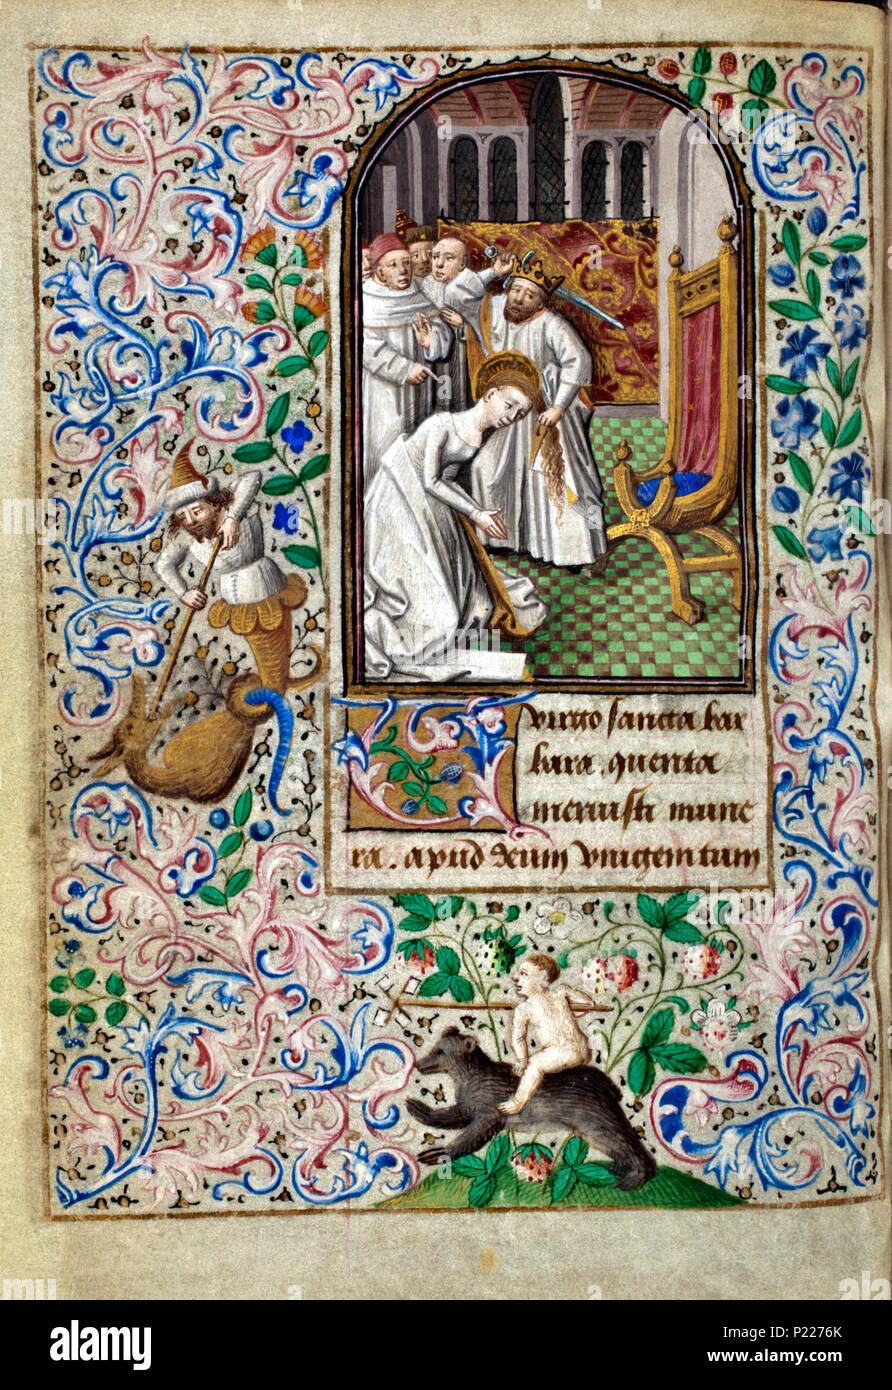 virgo sancta bar
bara. quenta
meruisti mune
ra. apud deum unigenitum
alamy
Image ID: P2276K
www.alamy.com